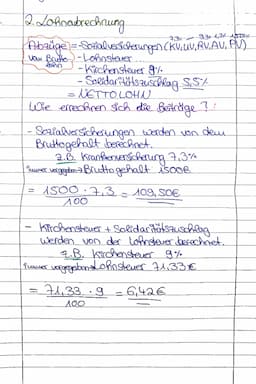 2. Lohnabrechnung
Abzüge = - Sozialversicherungen (KV, UV, RV, AV, PV)
von Brutto - Lohnsteuer
lohn - Kirchensteuer 9%
- Solidaritätszuschlag 5,5%
= NETTOLOHN
Wie errechnen sich die Beiträge?:
- Sozialversicherungen werden von dem
Bruttogehalt berechnet.
z.B. Krankenversicherung 7,3%
*immer vorgegeben Bruttogehalt 1500€
= 1500 · 7,3 = 109,50€
100
- Kirchensteuer + Solidaritätszuschlag
werden von der Lohnsteuer berechnet.
z.B. Kirchensteuer 9%
*immer vorgegeben Lohnsteuer 71,33€
= 71,33 · 9 = 6,42€
100